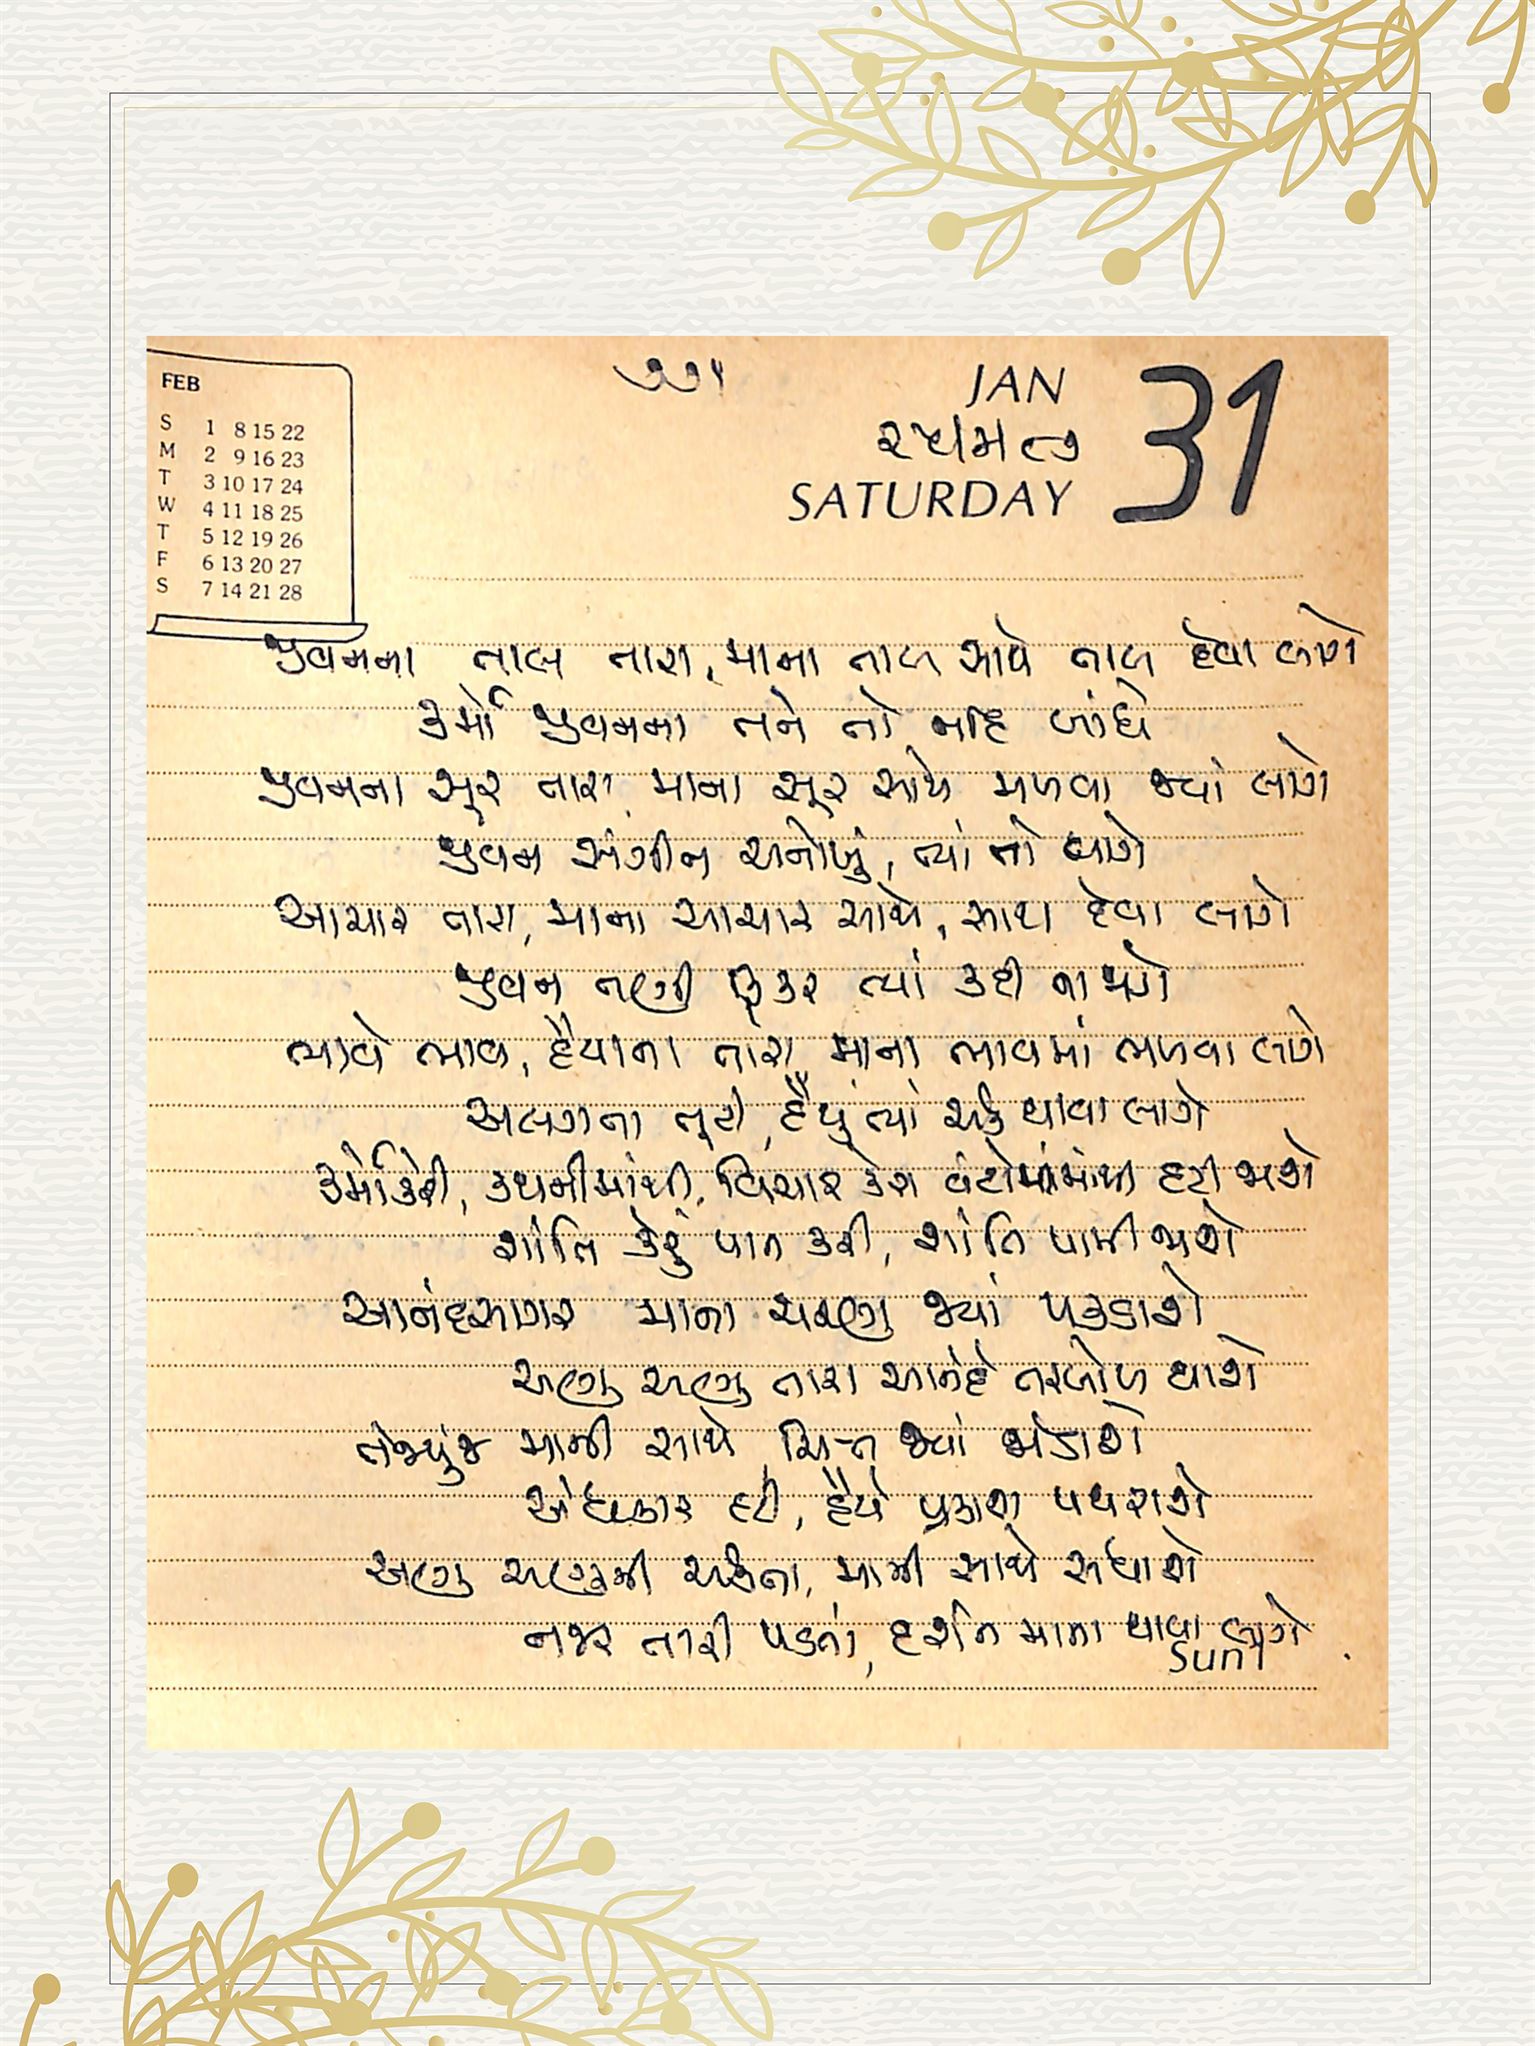 FEB
S 1 8 15 22
M 2 9 16 23
T 3 10 17 24
W 4 11 18 25
T 5 12 19 26
F 6 13 20 27
S 7 14 21 28
JAN
31
SATURDAY
જીવનના તાલ તારા, માના તાલ સાથે તાલ દેવા લાગે
કર્મો જીવનના તને તો નહિ બાંધે
જીવનના સૂર તારા, માના સૂર સાથે મળવા જ્યાં લાગે
જીવન સંગીત અનોખું, ત્યાં તો થાગે
આચાર તારા, માના આચાર સાથે, સાથ દેવા લાગે
જીવન તણી ફિકર ત્યાં કદી ના જાગે
ભાવે ભાવ, હૈયાના તારા, માંના ભાવમાં ભળવા લાગે
અલગતા તૂટી, હૈયું ત્યાં એક થાવા લાગે
કર્મોકેરી, કથનીમાંથી, વિચાર કેરા વંટોળમાંથી હટી જાશે
શાંતિ કેરું પાન કરી, શાંતિ પામી જાશે
આનંદસાગર માના ચરણ જ્યાં પકડાશે
અણુ અણુ તારા આનંદે તરબોળ થાશે
તેજપુંજ માની સાથે, ચિત્ત જ્યાં જોડાશે
અંધકાર હટી, હૈયે પ્રકાશ પથરાશે
અણુ અણુની એકતા, માની સાથે સધાશે
નજર તારી પડતાં, દર્શન માના થાવા લાગે
Sun 1